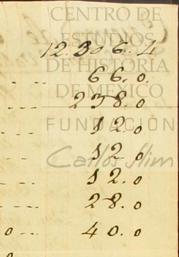 CENTRO DE
ESTUDIOS
12306.4
DE HISTORIA
66.0
DE MEXICO
278.0
FUNDACIÓN
12.0
Carlos Slim
12.0
12.0
28.0
40.0